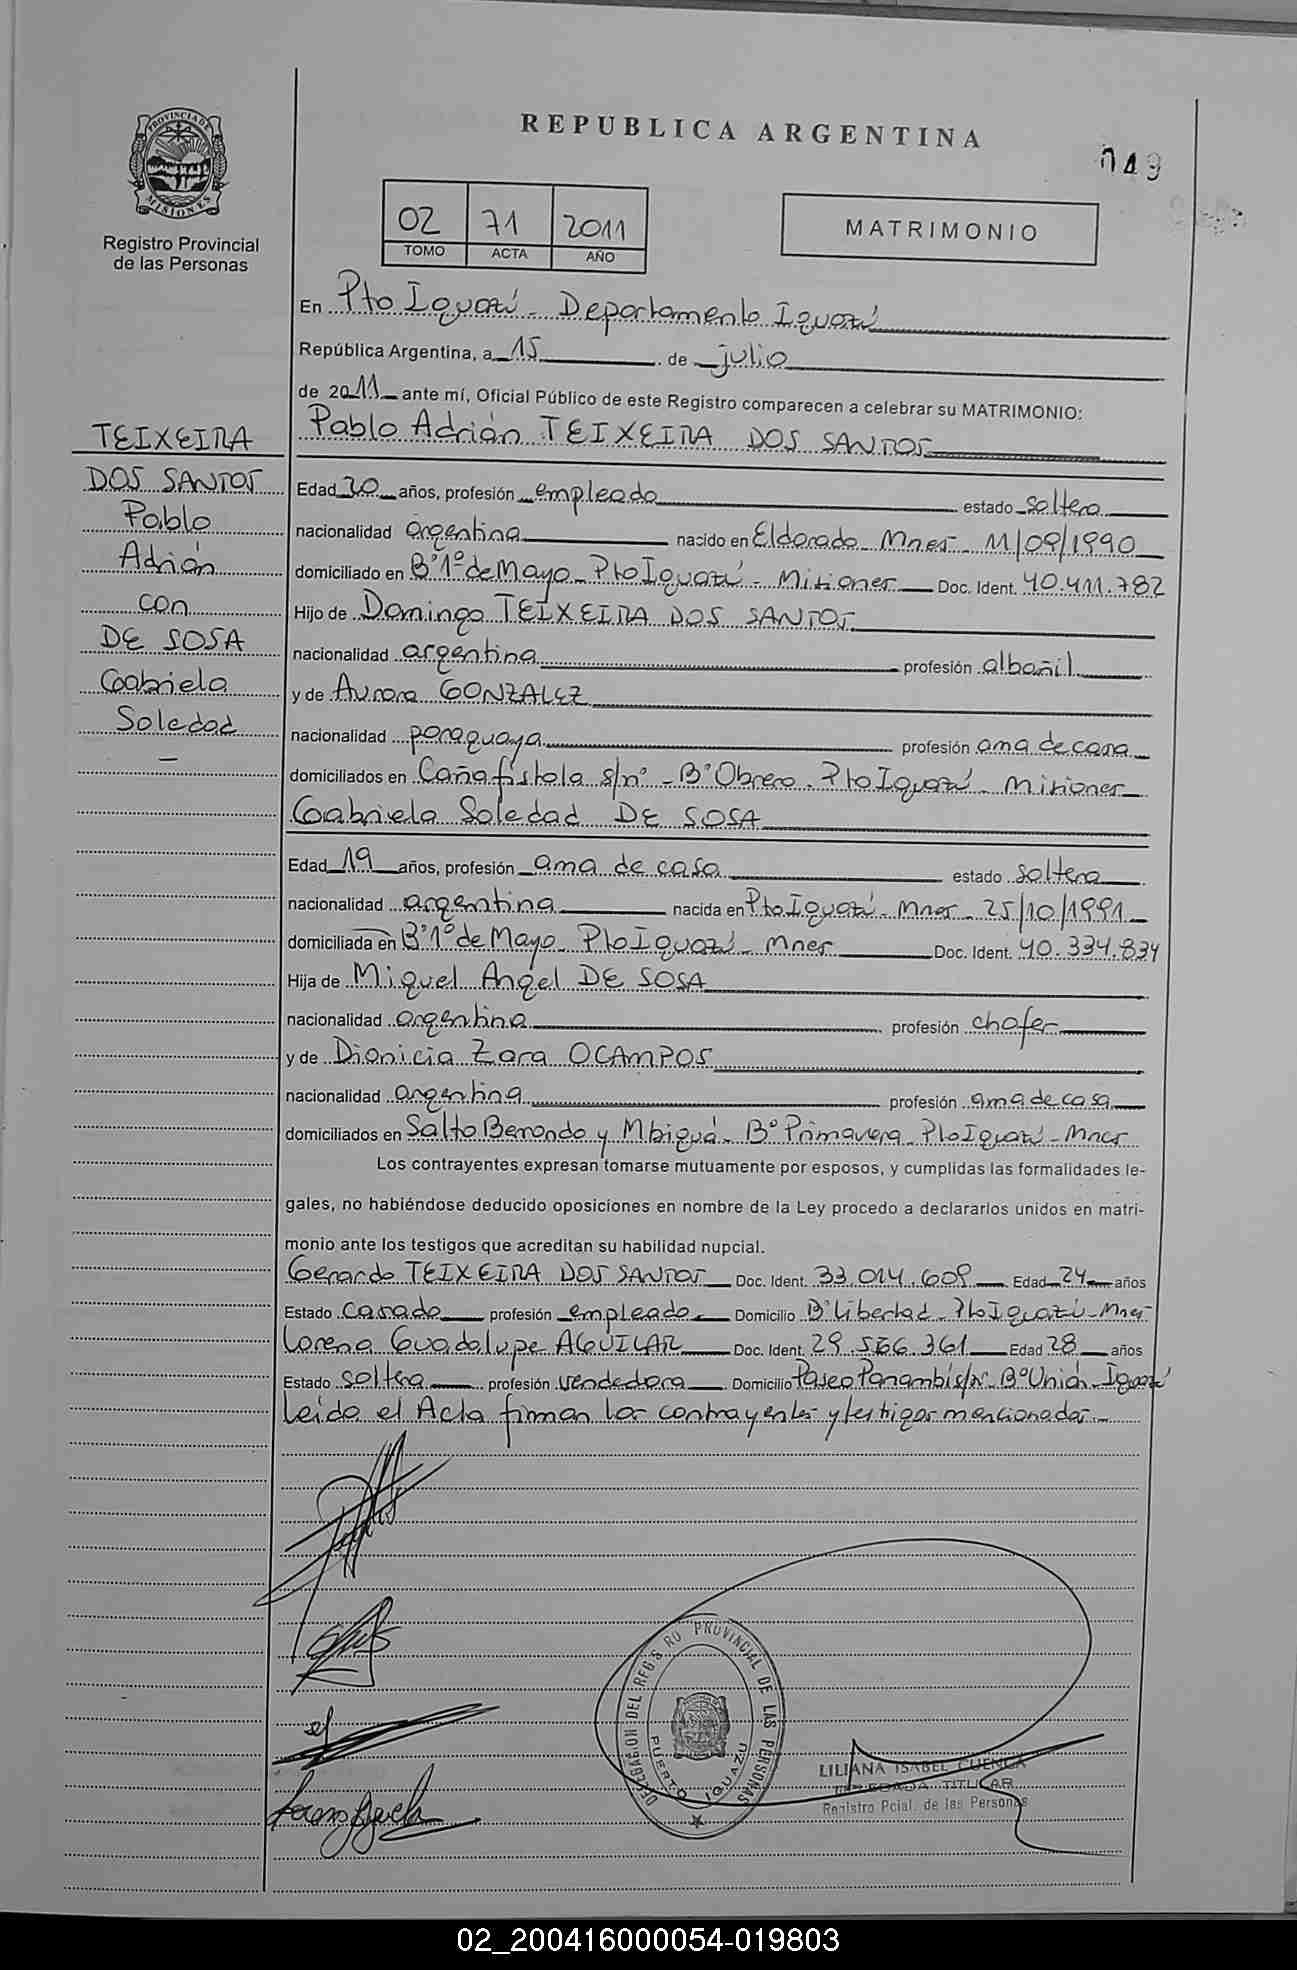 REPUBLICA ARGENTINA
049
PROVINCIA DE MISIONES
Registro Provincial
de las Personas
02 71 2011
TOMO ACTA AÑO
MATRIMONIO
En Pto Iguazú - Departamento Iguazú
República Argentina, a 15 de julio
de 2011 ante mí, Oficial Público de este Registro comparecen a celebrar su MATRIMONIO:
Pablo Adrián TEIXEIRA DOS SANTOS
TEIXEIRA
DOS SANTOS
Pablo
Adrián
con
DE SOSA
Gabriela
Soledad
Edad 20 años, profesión empleado estado soltero
nacionalidad argentina nacido en Eldorado Mnes - 11/09/1990
domiciliado en B° 1° de Mayo - Pto Iguazú - Misiones Doc. Ident. 40.411.782
Hijo de Domingo TEIXEIRA DOS SANTOS
nacionalidad argentina profesión albañil
y de Aurora GONZALEZ
nacionalidad paraguaya profesión ama de casa
domiciliados en Cañafístola s/n° - B° Obrero - Pto Iguazú - Misiones
Gabriela Soledad DE SOSA
Edad 19 años, profesión ama de casa estado soltera
nacionalidad argentina nacida en Pto Iguazú - Mnes - 25/10/1991
domiciliada en B° 1° de Mayo - Pto Iguazú - Mnes Doc. Ident. 40.334.834
Hija de Miguel Angel DE SOSA
nacionalidad argentina profesión chofer
y de Dionicia Zara OCAMPOS
nacionalidad argentina profesión ama de casa
domiciliados en Salto Berrondo y Mbiguá - B° Primavera - Pto Iguazú - Mnes
Los contrayentes expresan tomarse mutuamente por esposos, y cumplidas las formalidades le-
gales, no habiéndose deducido oposiciones en nombre de la Ley procedo a declararlos unidos en matri-
monio ante los testigos que acreditan su habilidad nupcial.
Gerardo TEIXEIRA DOS SANTOS Doc. Ident. 33.014.609 Edad 24 años
Estado casado profesión empleado Domicilio B° Libertad - Pto Iguazú - Mnes
Lorena Guadalupe AGUILAR Doc. Ident. 29.566.361 Edad 28 años
Estado soltera profesión vendedora Domicilio Paseo Panambí s/n° - B° Unión - Iguazú
Leído el Acta firman los contrayentes y testigos mencionados
DELEGACION DEL REGISTRO PROVINCIAL DE LAS PERSONAS
PUERTO IGUAZU
LILIANA ISABEL CUENCA
TITULAR
Registro Pcial. de las Personas
02_200416000054-019803